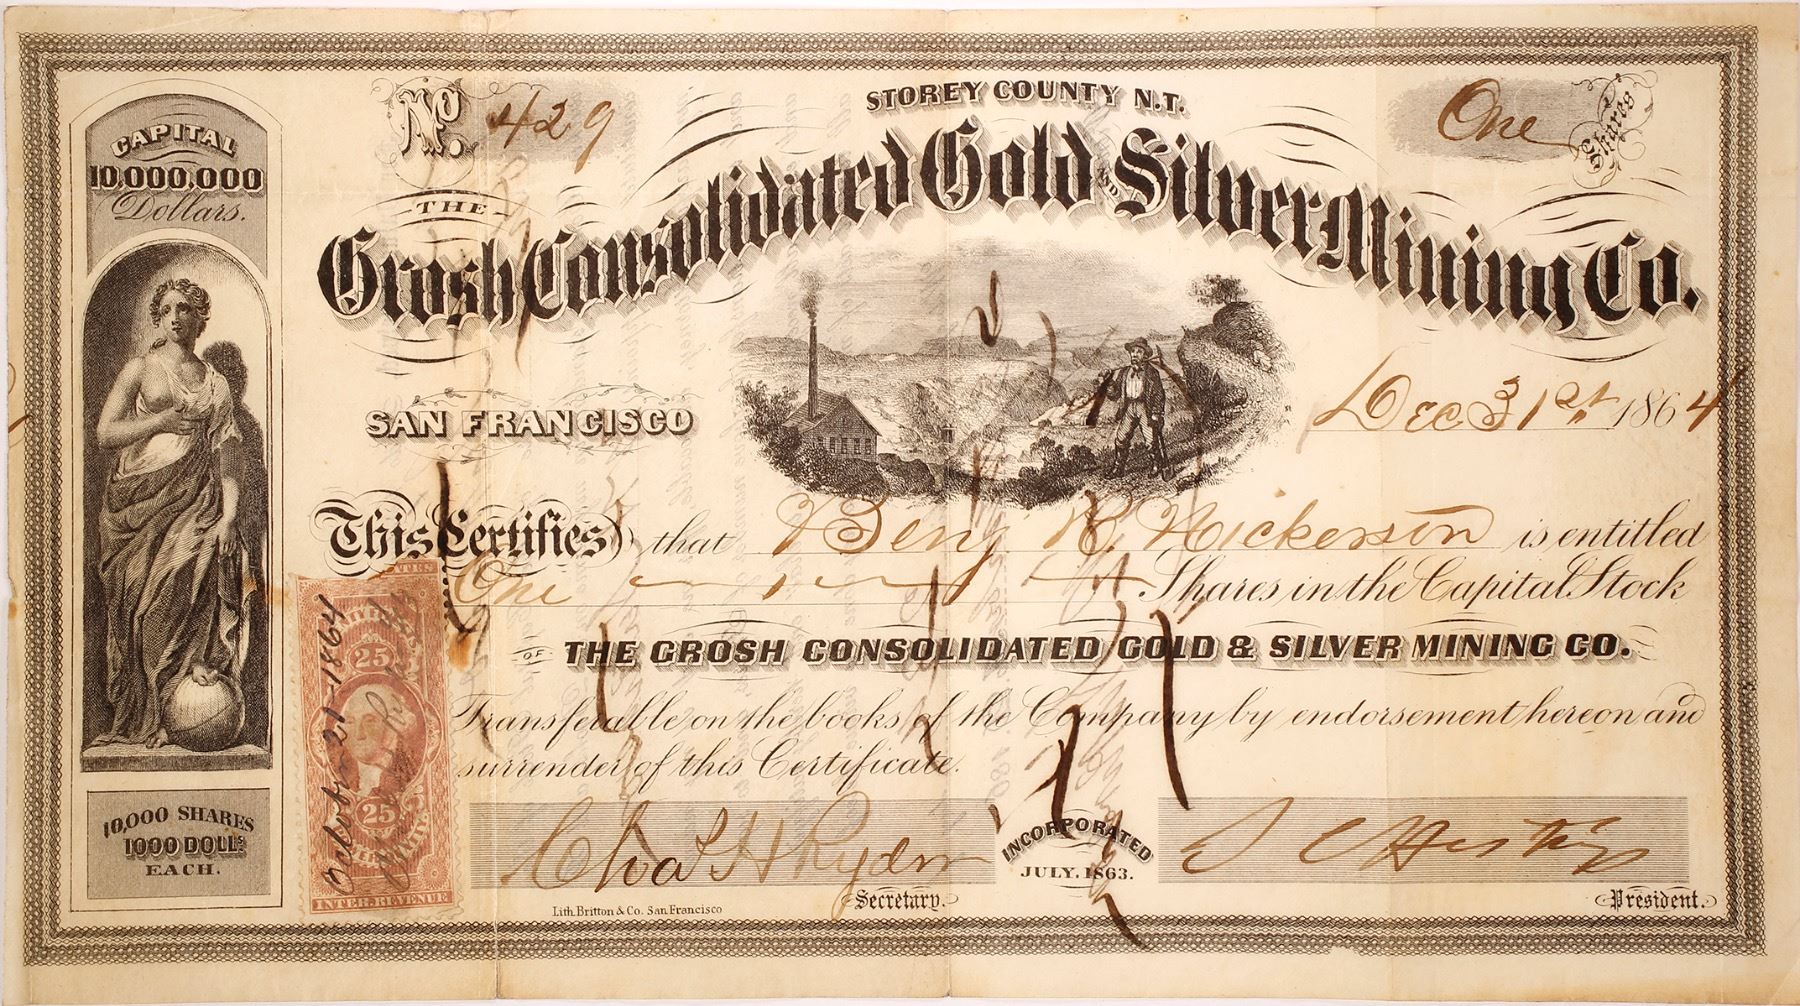 CAPITAL
10,000,000
Dollars.
10,000 SHARES
1000 DOLLS
EACH.
No. 429
STOREY COUNTY N.T.
One Shares
THE
Grosh Consolidated Gold AND Silver Mining Co.
SAN FRANCISCO
Dec 31st 1864
This Certifies that Benj. R. Nickerson is entitled
One Shares in the Capital Stock
OF THE GROSH CONSOLIDATED GOLD & SILVER MINING CO.
Transferable on the books of the Company by endorsement hereon and
surrender of this Certificate.
25
25
INTER. REVENUE
October 21-1864
Chas H Ryder
Secretary.
INCORPORATED
JULY. 1863.
S C Hastings
President.
Lith. Britton & Co. San Francisco